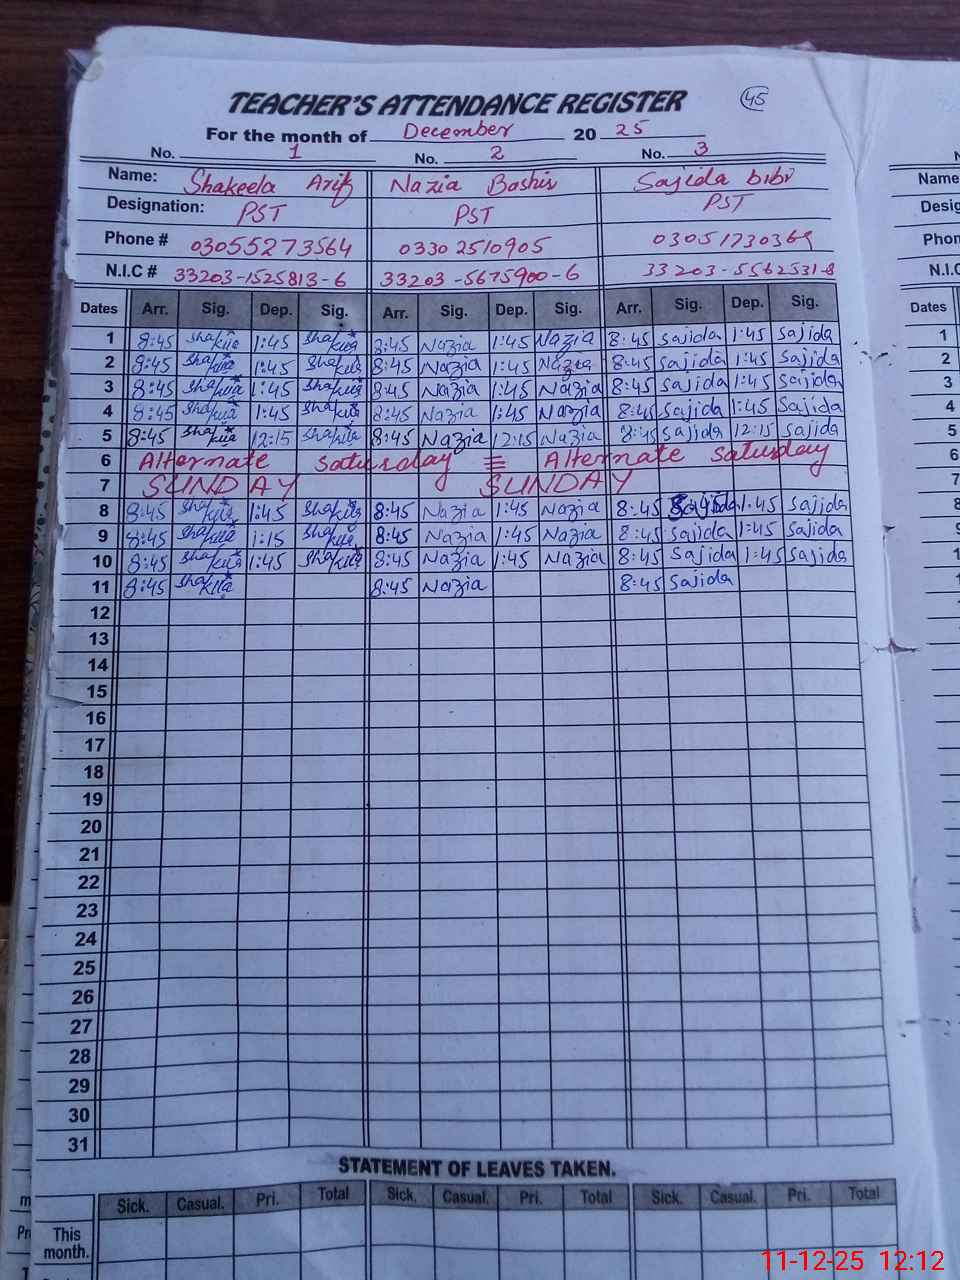 TEACHER'S ATTENDANCE REGISTER 45
For the month of December 20 25
No. 1 No. 2 No. 3
Name: Shakeela Arif Nazia Bashir Sajida bibi
Designation: PST PST PST
Phone # 03055273564 03302510905 03051730369
N.I.C # 33203-1525813-6 33203-5675900-6 33203-5562531-8
Dates Arr. Sig. Dep. Sig. Arr. Sig. Dep. Sig. Arr. Sig. Dep. Sig.
1 8:45 Shakila 1:45 Shakila 8:45 Nazia 1:45 Nazia 8:45 Sajida 1:45 Sajida
2 8:45 Shakila 1:45 Shakila 8:45 Nazia 1:45 Nazia 8:45 Sajida 1:45 Sajida
3 8:45 Shakila 1:45 Shakila 8:45 Nazia 1:45 Nazia 8:45 Sajida 1:45 Sajida
4 8:45 Shakila 1:45 Shakila 8:45 Nazia 1:45 Nazia 8:45 Sajida 1:45 Sajida
5 8:45 Shakila 12:15 Shakila 8:45 Nazia 12:15 Nazia 8:45 Sajida 12:15 Sajida
6 Alternate saturday Alternate saturday
7 SUNDAY SUNDAY
8 8:45 Shakila 1:45 Shakila 8:45 Nazia 1:45 Nazia 8:45 Sajida 1:45 Sajida
9 8:45 Shakila 1:15 Shakila 8:45 Nazia 1:45 Nazia 8:45 Sajida 1:45 Sajida
10 8:45 Shakila 1:45 Shakila 8:45 Nazia 1:45 Nazia 8:45 Sajida 1:45 Sajida
11 8:45 Shakila 8:45 Nazia 8:45 Sajida
12
13
14
15
16
17
18
19
20
21
22
23
24
25
26
27
28
29
30
31
STATEMENT OF LEAVES TAKEN.
Sick. Casual. Pri. Total Sick. Casual. Pri. Total Sick. Casual. Pri. Total
This
month.
11-12-25 12:12